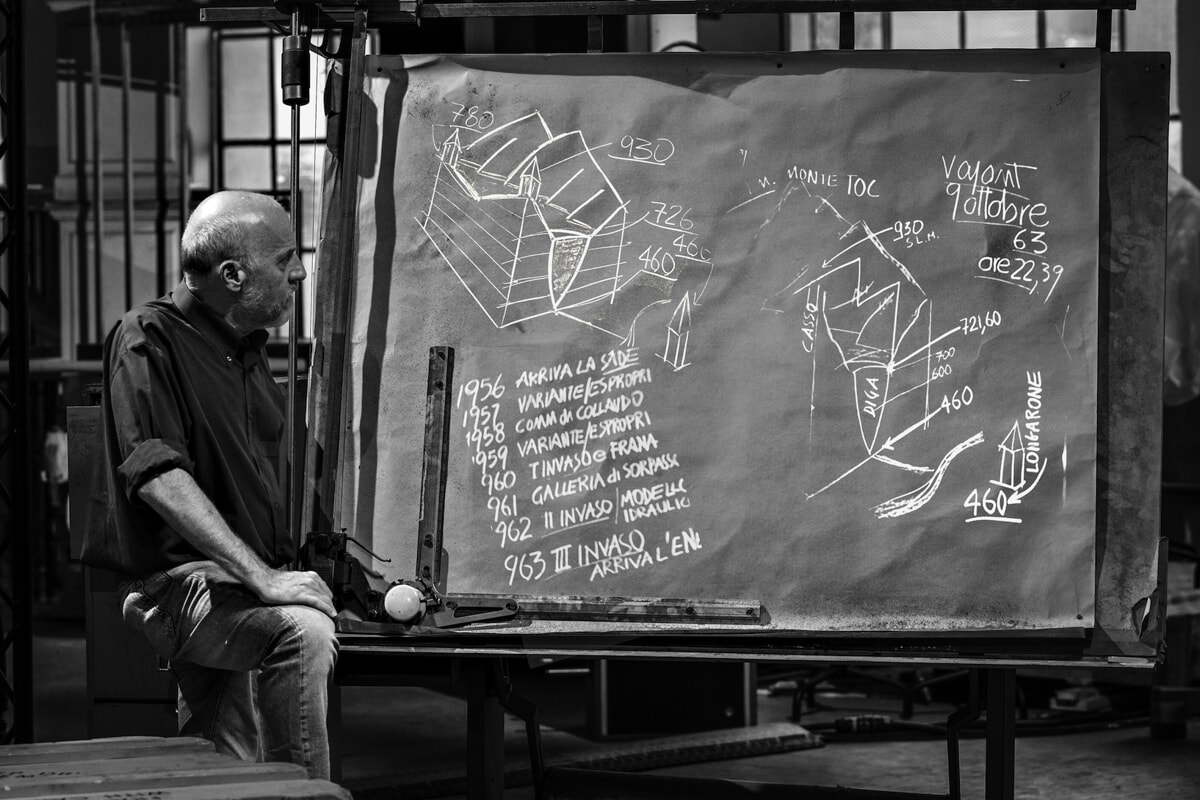 780
930
726
460
460
1956 ARRIVA LA SADE
1957 VARIANTE/ESPROPRI
1958 COMM di COLLAUDO
'959 VARIANTE/ESPROPRI
960 I INVASO e FRANA
961 GALLERIA di SORPASS
'962 II INVASO/MODELLO
IDRAULIC
963 III INVASO
ARRIVA L'EN
M. MONTE TOC
930
S.L.M.
CASSO
721,60
700
600
DIGA
460
LONGARONE
460
VAJONT
9 ottobre
63
ore 22,39